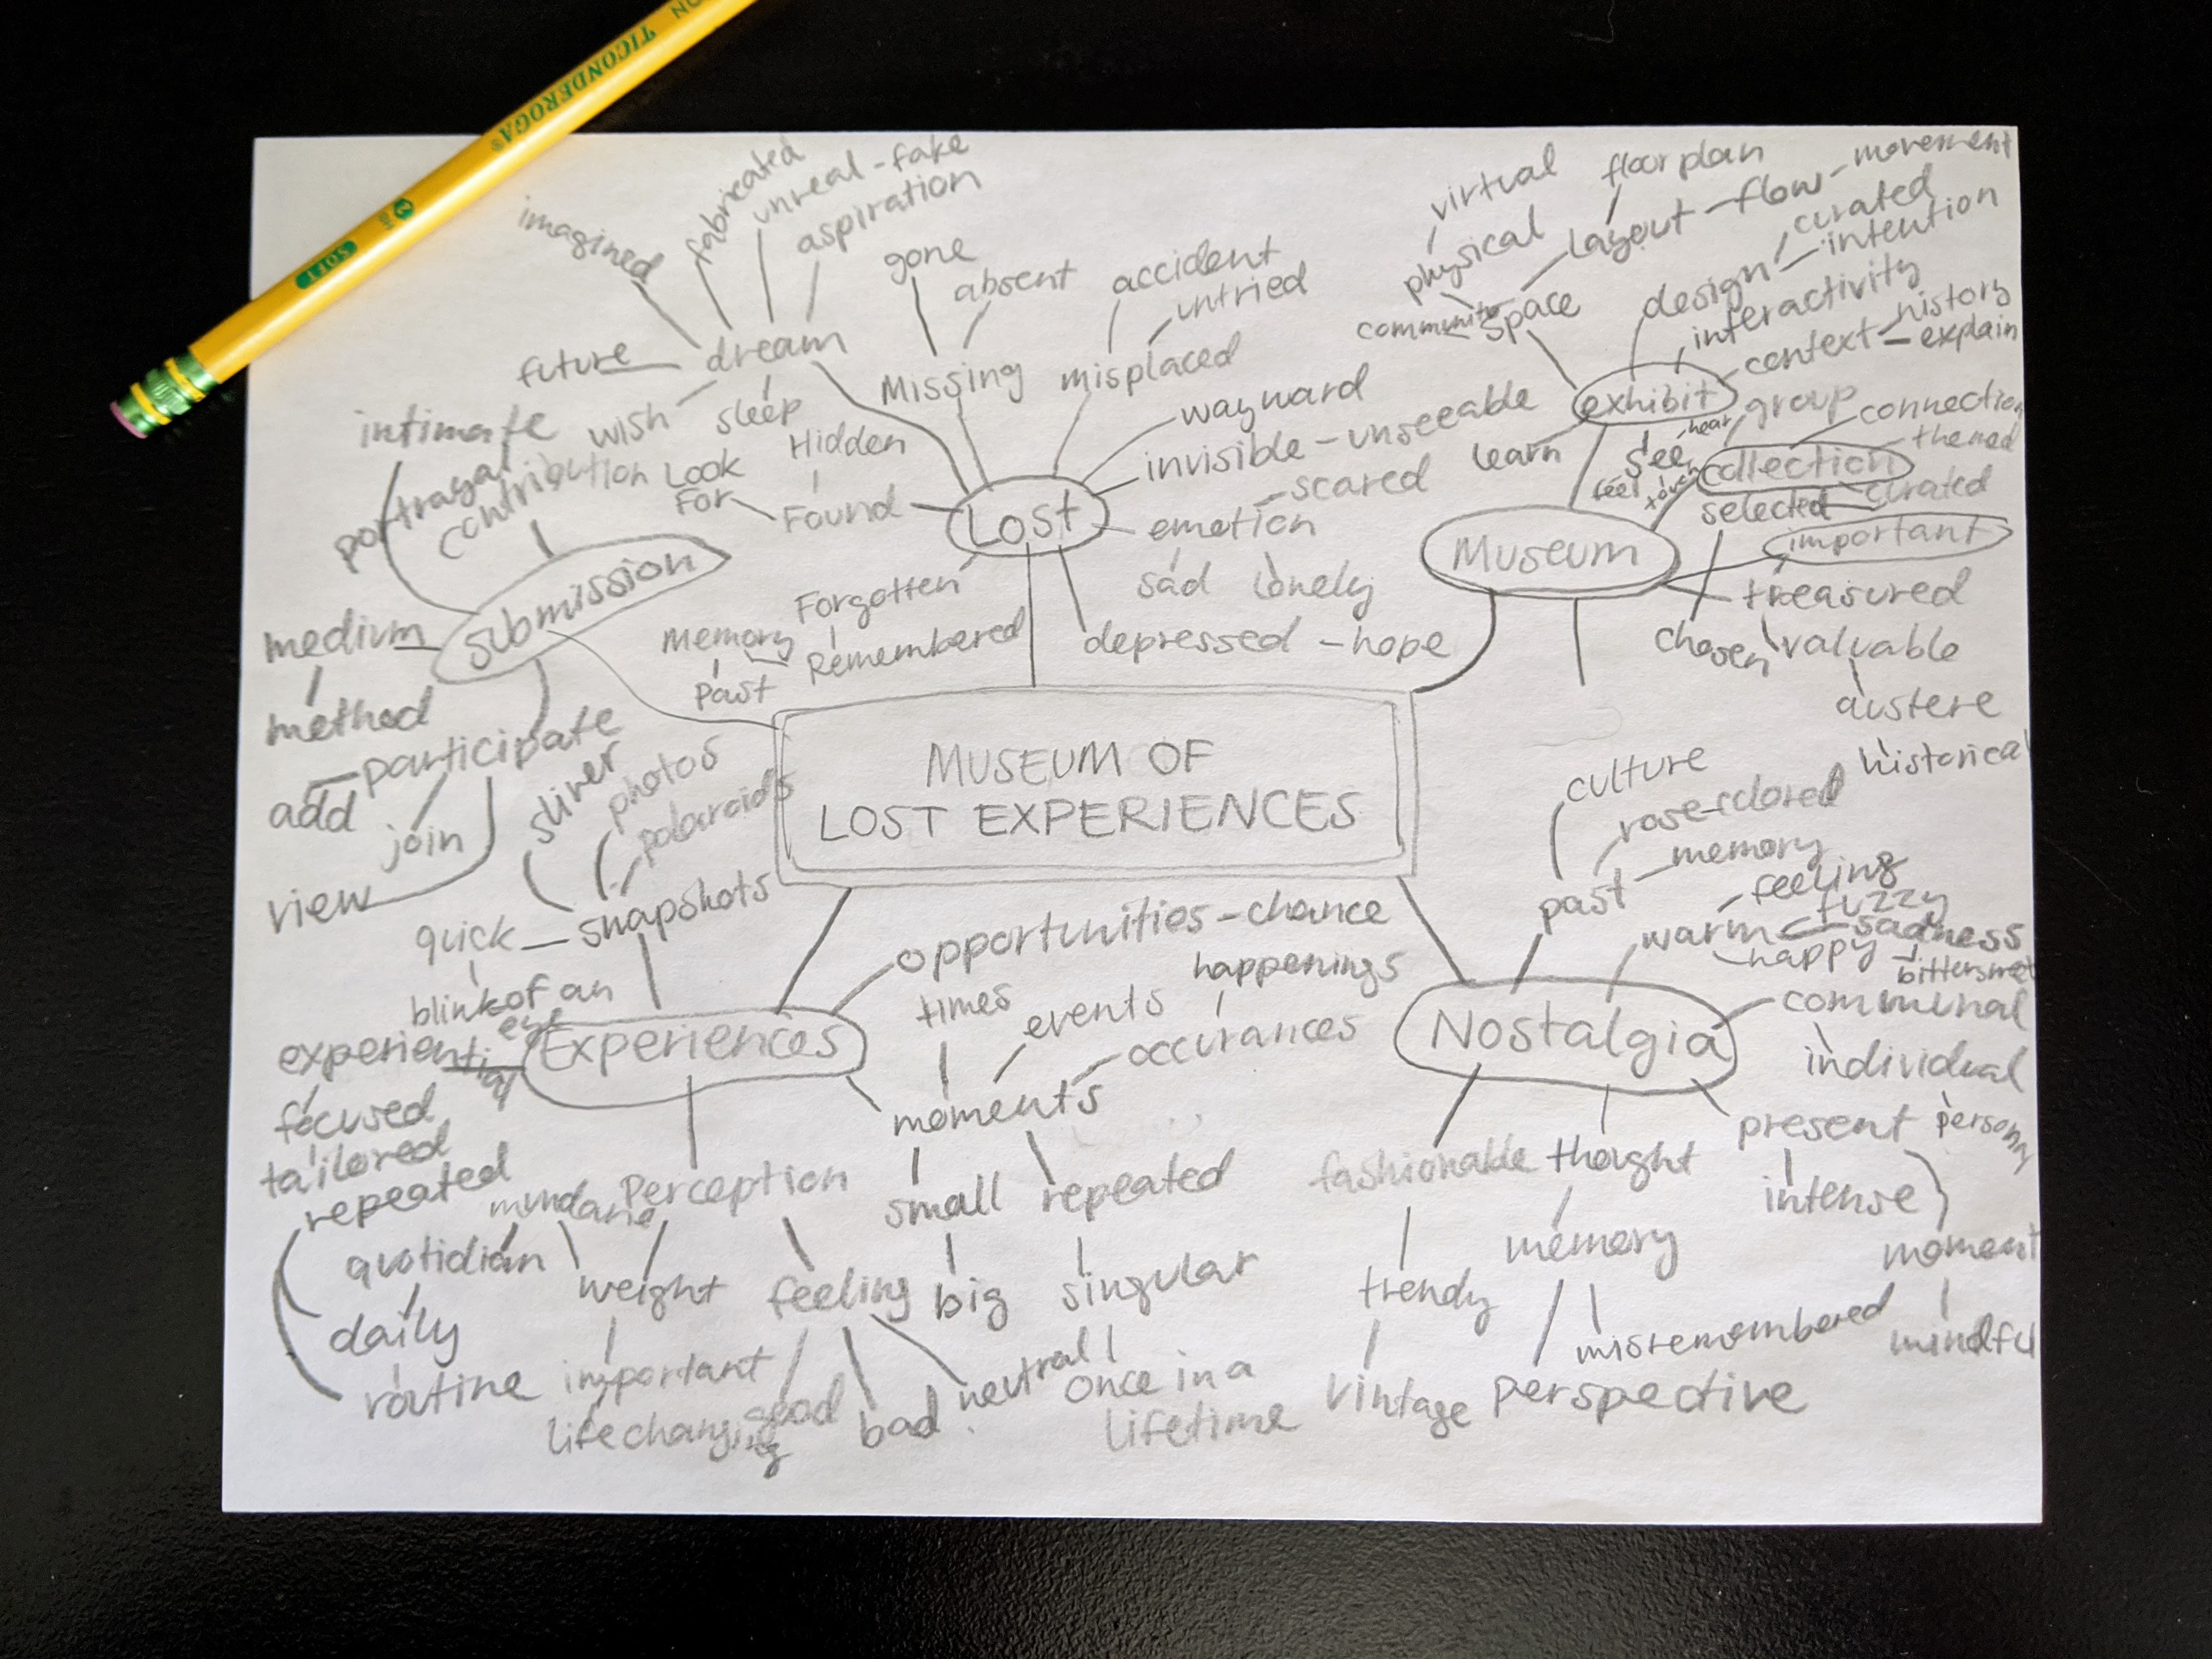 TICONDEROGA®
2
SOFT
imagined
fabricated
unreal - fake
aspiration
future
dream
wish
sleep
gone
absent
Missing
accident
untried
misplaced
wayward
invisible - unseeable
Hidden
Look
For
Found
LOST
scared
emotion
sad
lonely
depressed - hope
Forgotten
Remembered
Memory
Past
virtual
floorplan
physical
layout - flow - movement
community
space
design
curated
intention
interactivity
context
history
explain
exhibit
learn
see
hear
feel
touch
group
collection
connection
themed
selected
curated
chosen
Museum
important
treasured
valuable
austere
historical
intimate
portrayal
contribution
submission
medium
method
participate
add
join
view
MUSEUM OF
LOST EXPERIENCES
sliver
photos
polaroids
quick
snapshots
blink of an
eye
experiential
focused
tailored
repeated
Experiences
opportunities - chance
times
events
happenings
occurances
moments
small
repeated
big
singular
once in a
lifetime
Perception
mundane
quotidian
daily
routine
weight
important
lifechanging
feeling
good
bad
neutral
culture
rose-colored
memory
past
feeling
warm
fuzzy
happy
sadness
bittersweet
Nostalgia
communal
individual
present
intense
moment
mindful
fashionable
trendy
vintage
thought
memory
misremembered
perspective